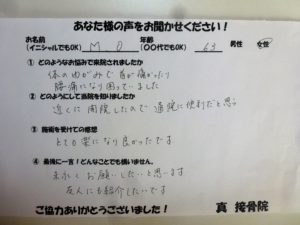 あなた様の声をお聞かせください！
お名前
(イニシャルでもOK) M O 年齢 (〇〇代でもOK) 63 男性 女性
① どのようなお悩みで来院されましたか
体のゆがみで首が痛かったり
腰痛になり困っていました
② どのようにして当院を知りましたか
近くに開院したので通院に便利だと思う
③ 施術を受けての感想
とても楽になり良かったです
④ 最後に一言！どんなことでも構いません。
末永くお願いしたいと思います
友人にも紹介したいです
ご協力ありがとうございました！ 真 接骨院